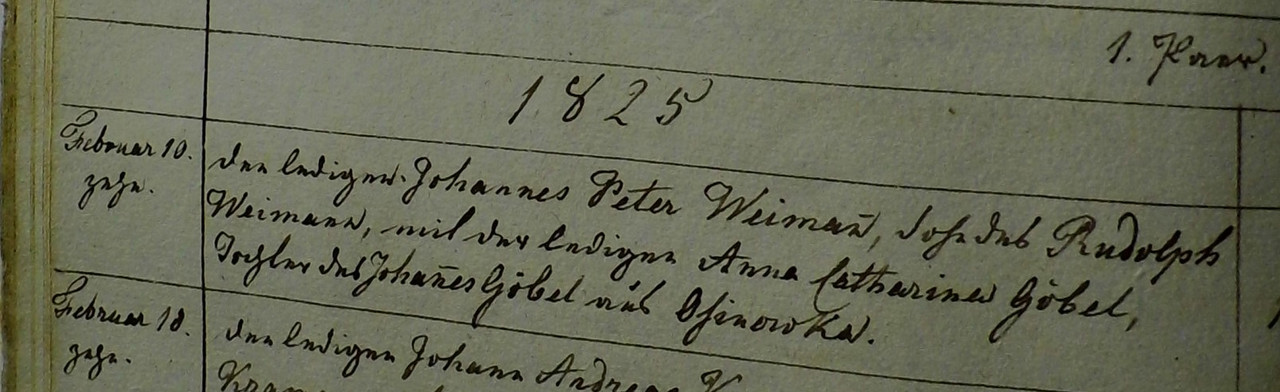 1. Paar.
1825
Februar 10. den ledigen Johannes Peter Weiman̅, Sohn des Rudolph
zehn. Weimann, mit der ledigen Anna Catharina Göbel,
Tochter des Johan̅es Göbel aus Osinowka.
Februar 18. den ledigen Johann Andreas